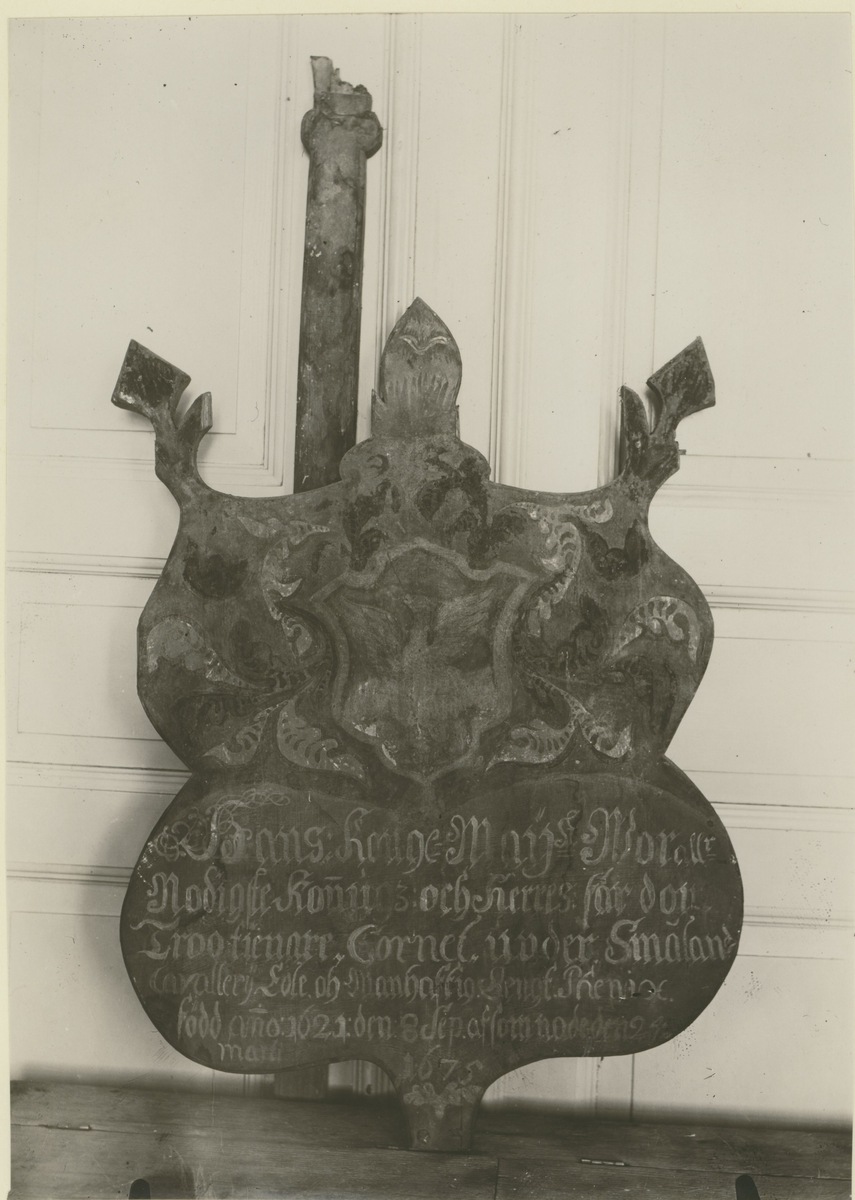 Hans: Konge: Maÿst Wor aller
Nådigste Koñings: och Herres: får dou
Trootienare. Cornel. under Småland
Cavallerij Edle oh Manhafftig Bengt.
född año: 1621: den 8 Sep. afsomnade den 28
marti
1675